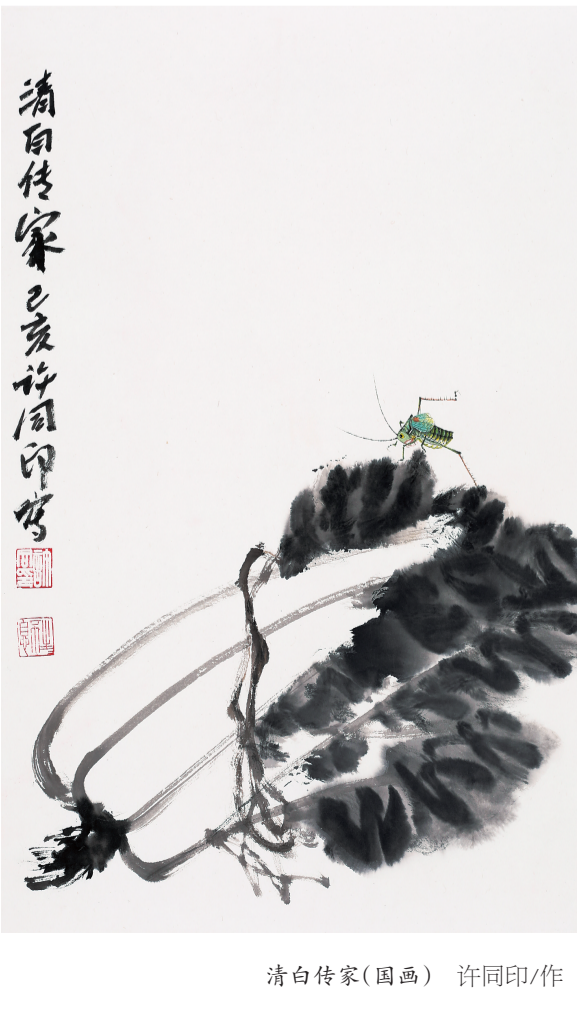 清白传家己亥许同印写
清白传家(国画) 许同印/作